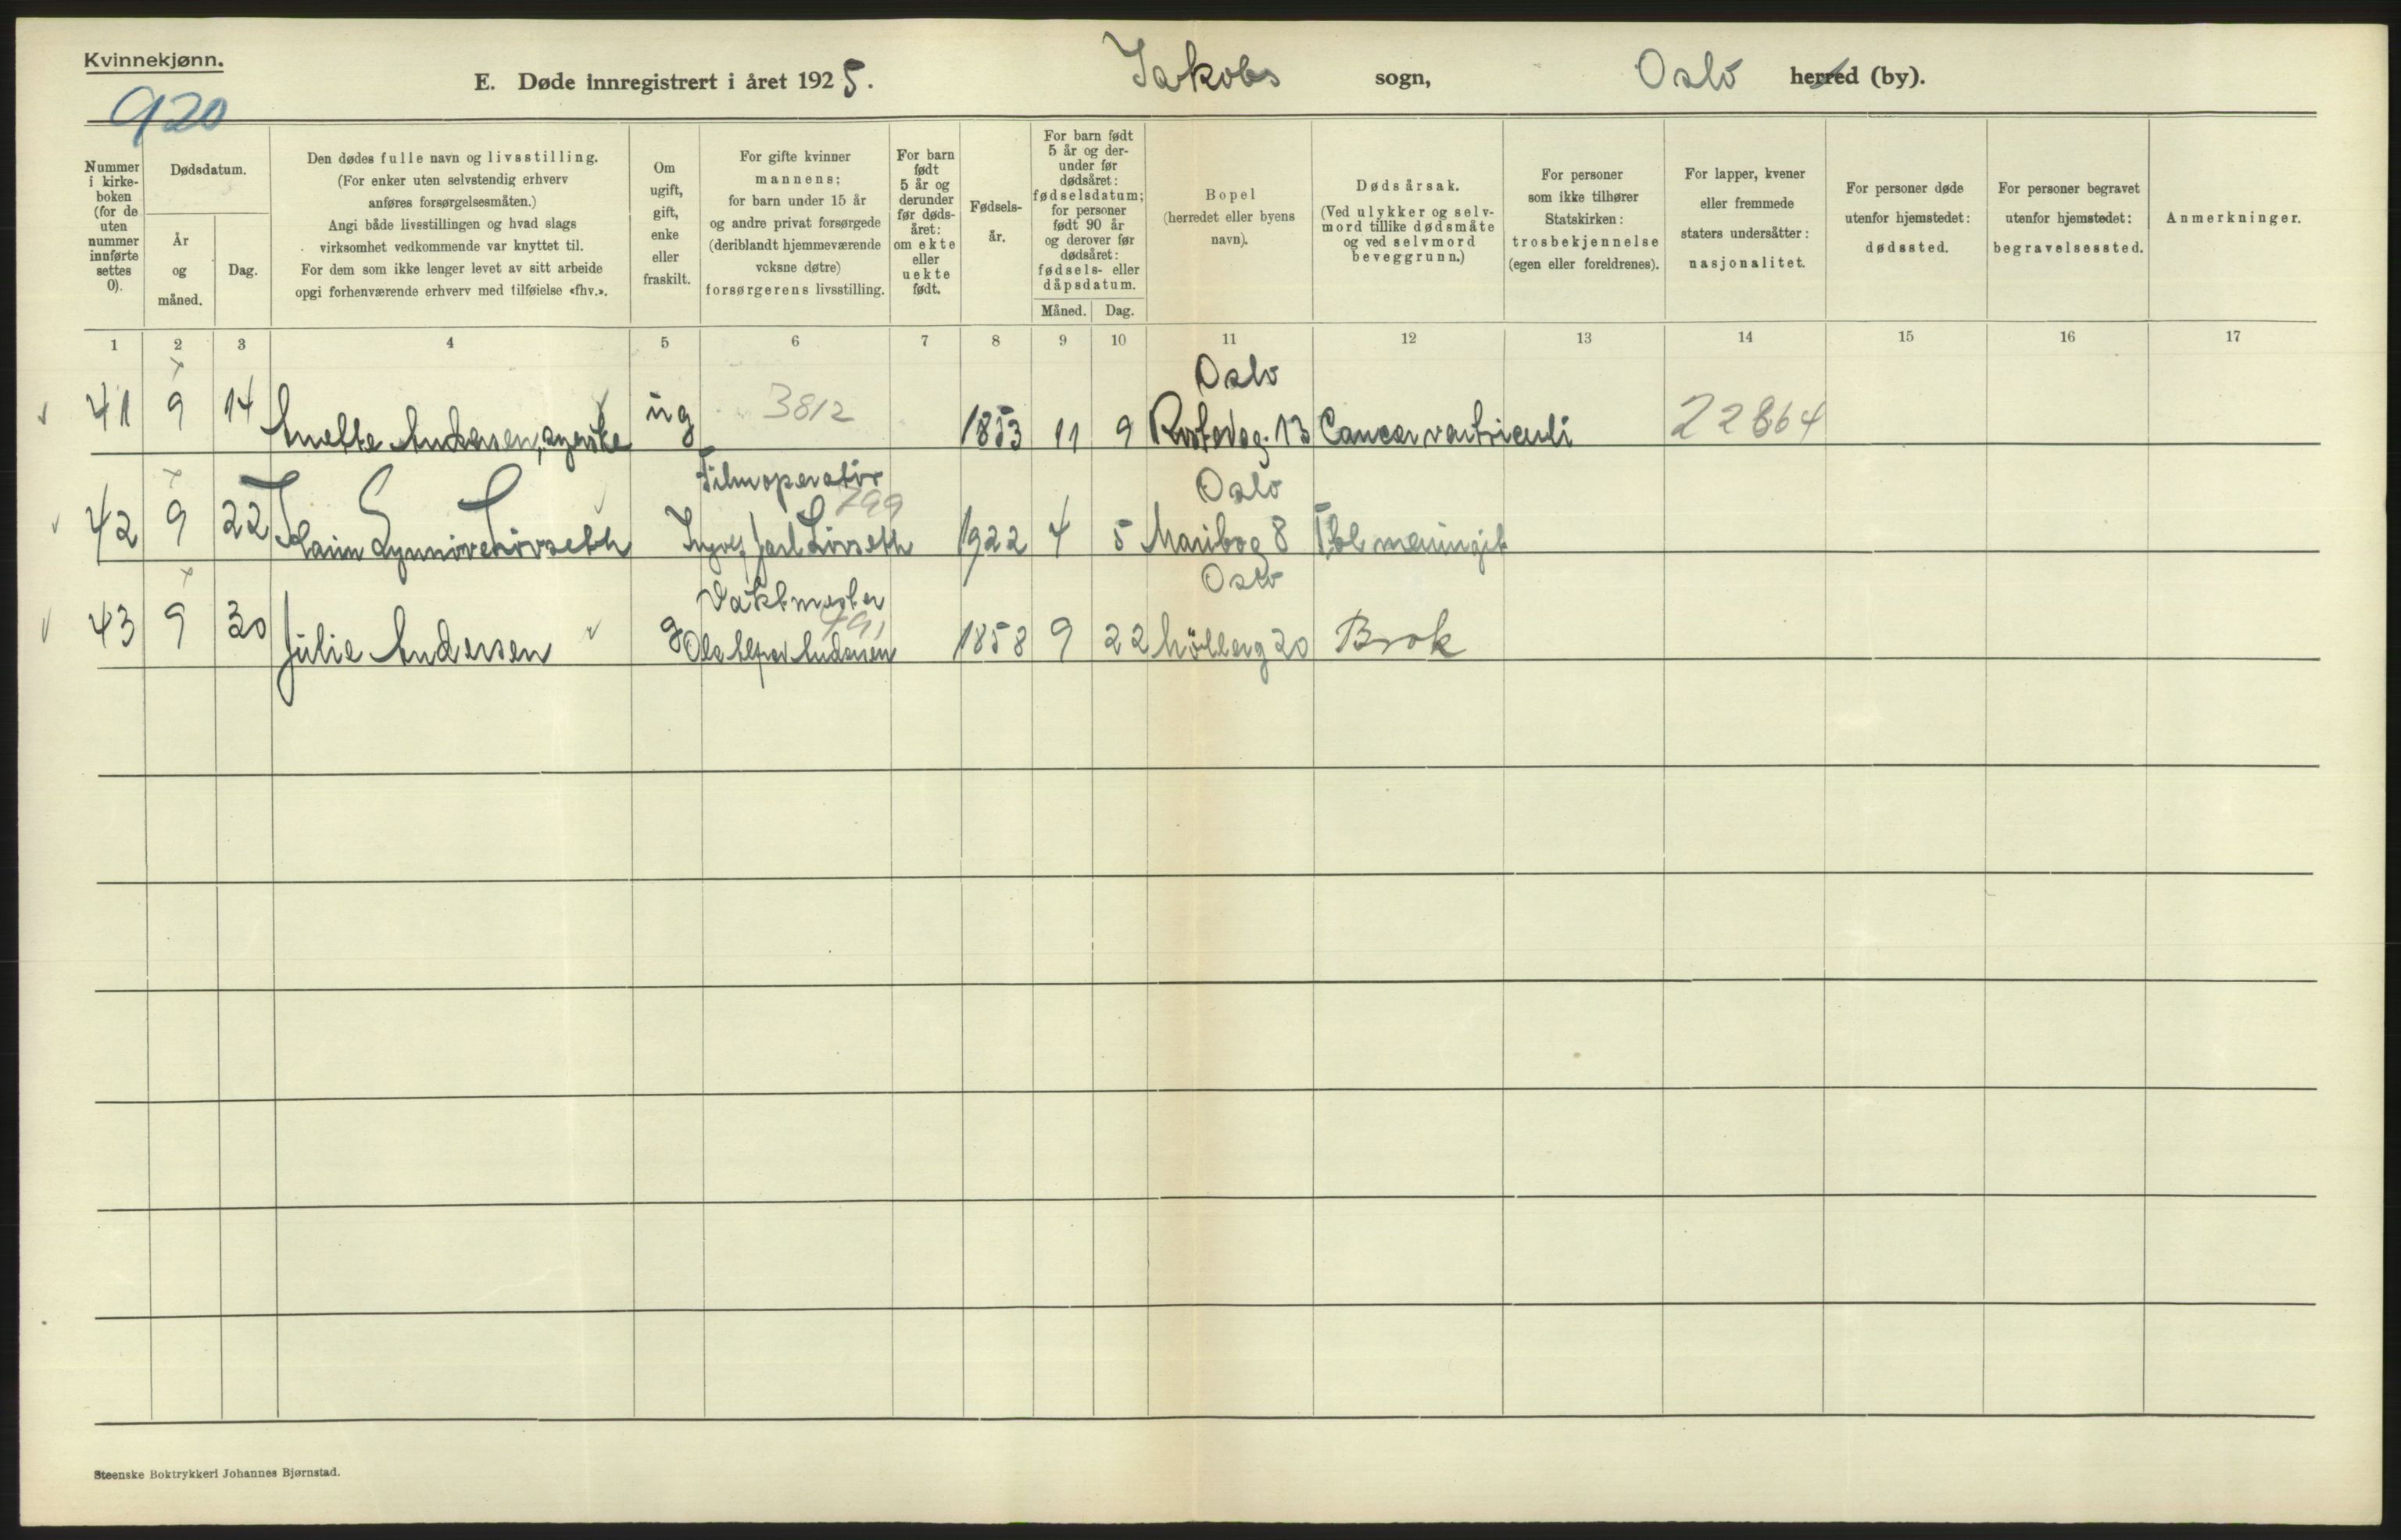 Kvinnekjønn.
920
E. Døde innregistrert i året 1925.
Jakobs sogn,
Oslo herred (by).
Nummer i kirke-boken (for de uten nummer innførte settes 0).
Dødsdatum.
År og måned.
Dag.
Den dødes fulle navn og livsstilling.
(For enker uten selvstendig erhverv
anføres forsørgelsesmåten.)
Angi både livsstillingen og hvad slags
virksomhet vedkommende var knyttet til.
For dem som ikke lenger levet av sitt arbeide
opgi forhenværende erhverv med tilføielse «fhv.».
Om ugift, gift, enke eller fraskilt.
For gifte kvinner
mannens;
for barn under 15 år
og andre privat forsørgede
(deriblandt hjemmeværende
voksne døtre)
forsørgerens livsstilling.
For barn født 5 år og derunder før døds-året: om ekte eller uekte født.
Fødsels-år.
For barn født
5 år og der-
under før
dødsåret:
fødselsdatum;
for personer
født 90 år
og derover før
dødsåret:
fødsels- eller
dåpsdatum.
Måned. Dag.
Bopel
(herredet eller byens
navn).
Dødsårsak.
(Ved ulykker og selv-
mord tillike dødsmåte
og ved selvmord
beveggrunn.)
For personer
som ikke tilhører
Statskirken:
trosbekjennelse
(egen eller foreldrenes).
For lapper, kvener
eller fremmede
staters undersåtter:
nasjonalitet.
For personer døde
utenfor hjemstedet:
dødssted.
For personer begravet
utenfor hjemstedet:
begravelsessted.
Anmerkninger.
1 2 3 4 5 6 7 8 9 10 11 12 13 14 15 16 17
Oslo
41 9 14 Anette Andersen, syerske ug 3812 1853 11 9 13 Cancer ventriculi 22864
Filmoperatør Oslo
799
42 9 22 Karin Synnøve Løvseth Jarl Løvseth 1922 4 5 Maribog 8 Tub meningit
Vaktmester Oslo
791
43 9 30 Julie Andersen g Ole Alfred Andersen 1858 9 22 Mölleg 20 Brok
Steenske Boktrykkeri Johannes Bjørnstad.